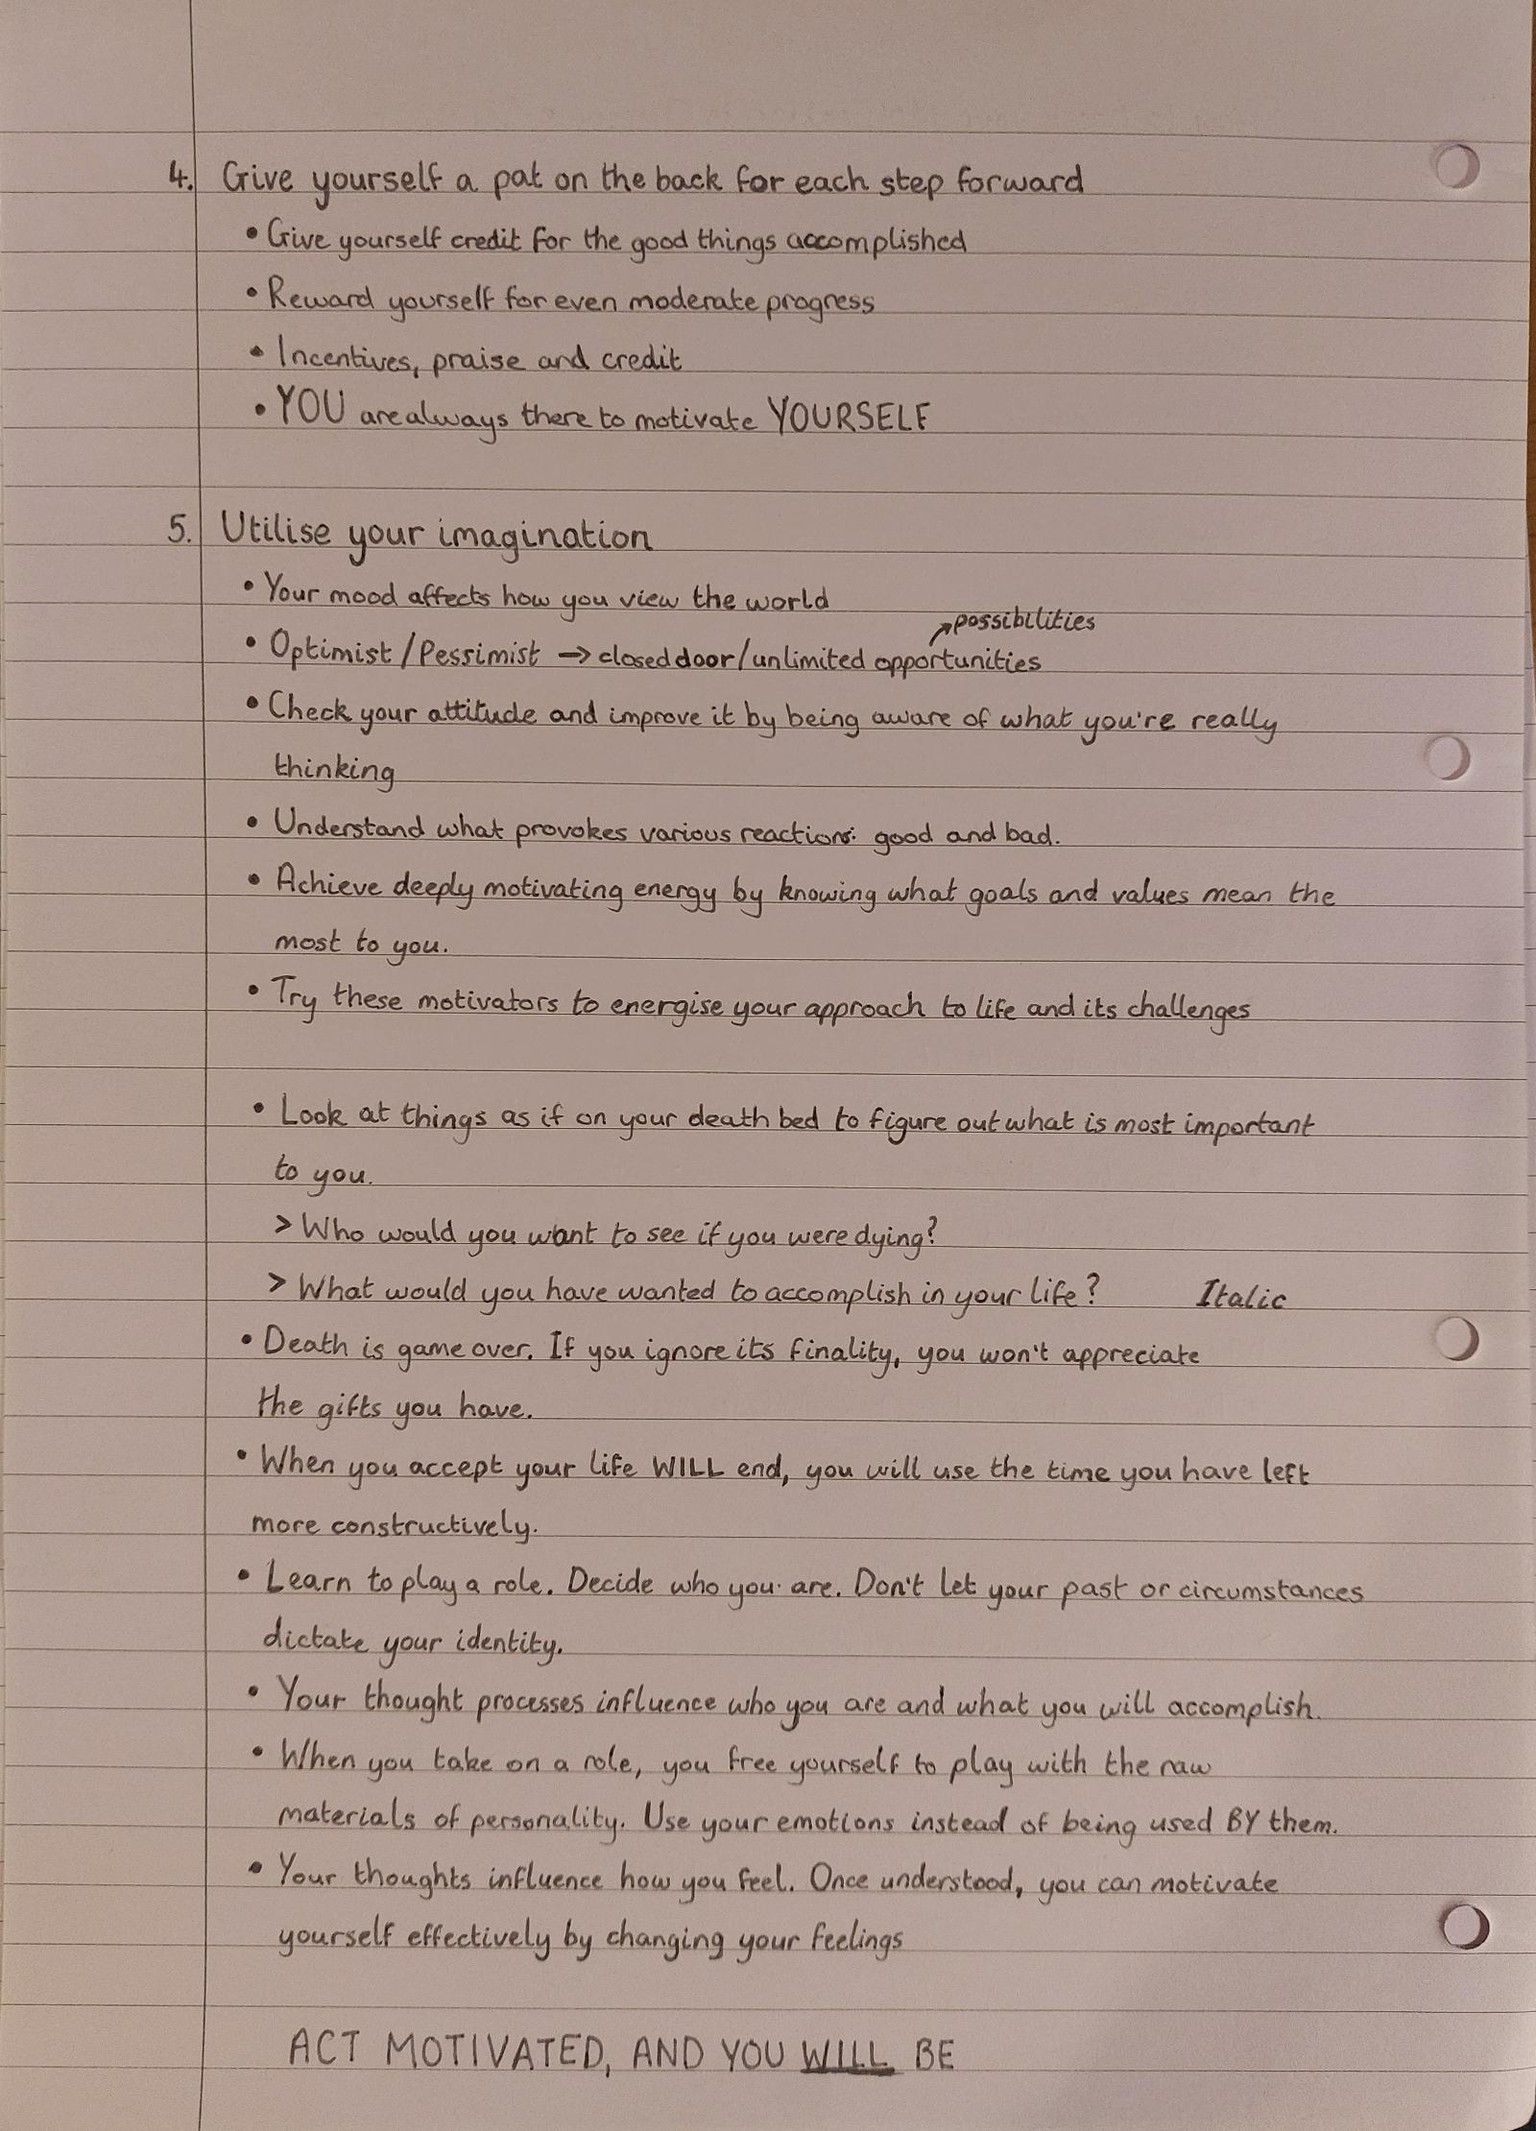 4. Give yourself a pat on the back for each step forward
• Give yourself credit for the good things accomplished
• Reward yourself for even moderate progress
• Incentives, praise and credit
• YOU are always there to motivate YOURSELF
5. Utilise your imagination
• Your mood affects how you view the world
↗possibilities
• Optimist / Pessimist → closed door/unlimited opportunities
• Check your attitude and improve it by being aware of what you're really
thinking
• Understand what provokes various reactions: good and bad.
• Achieve deeply motivating energy by knowing what goals and values mean the
most to you.
• Try these motivators to energise your approach to life and its challenges
• Look at things as if on your death bed to figure out what is most important
to you.
> Who would you want to see if you were dying?
> What would you have wanted to accomplish in your life? Italic
• Death is game over. If you ignore its finality, you won't appreciate
the gifts you have.
• When you accept your life WILL end, you will use the time you have left
more constructively.
• Learn to play a role. Decide who you are. Don't let your past or circumstances
dictate your identity.
• Your thought processes influence who you are and what you will accomplish.
• When you take on a role, you free yourself to play with the raw
materials of personality. Use your emotions instead of being used BY them.
• Your thoughts influence how you feel. Once understood, you can motivate
yourself effectively by changing your feelings
ACT MOTIVATED, AND YOU WILL BE